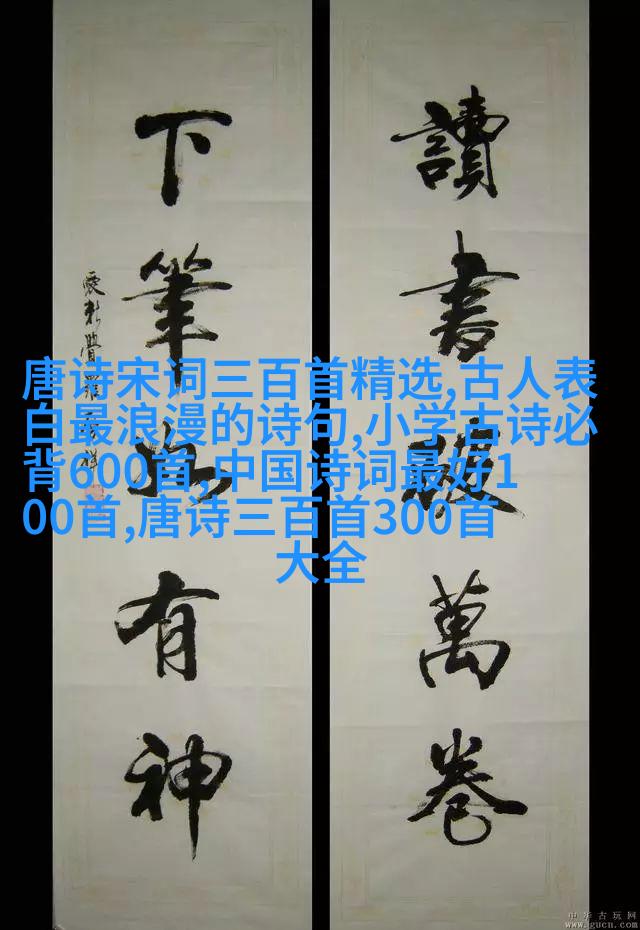 讀書破萬卷
下筆如有神
唐诗宋词三百首精选,古人表
白最浪漫的诗句,小学古诗必
背600首,中国诗词最好1
00首,唐诗三百首300首
大全
中华古玩网
www.gucn.com